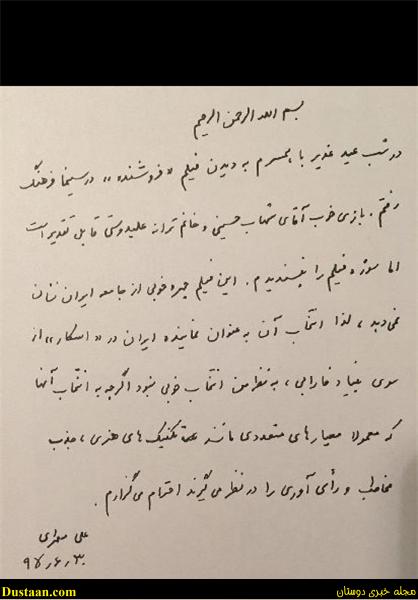 بسم الله الرحمن الرحیم
در شب عید غدیر با همسرم به دیدن فیلم «فروشنده» در سینما فرهنگ
رفتم. بازی خوب آقای شهاب حسینی و خانم ترانه علیدوستی قابل تقدیر است
اما سوژه فیلم را نپسندیدم. این فیلم چهره خوبی از جامعه ایران نشان
نمی‌دهد، لذا انتخاب آن به عنوان نماینده ایران در «اسکار» از
سوی بنیاد فارابی، به نظر من انتخاب خوبی نبود اگرچه به انتخاب آنها
که معمولا معیارهای متعددی مانند تکنیک‌های هنری، جذب
مخاطب و رأی آوری را در نظر می‌گیرند احترام می‌گزارم.
علی مطهری
۹۵/۶/۳۰
Dustaan.com
مجله خبری دوستان